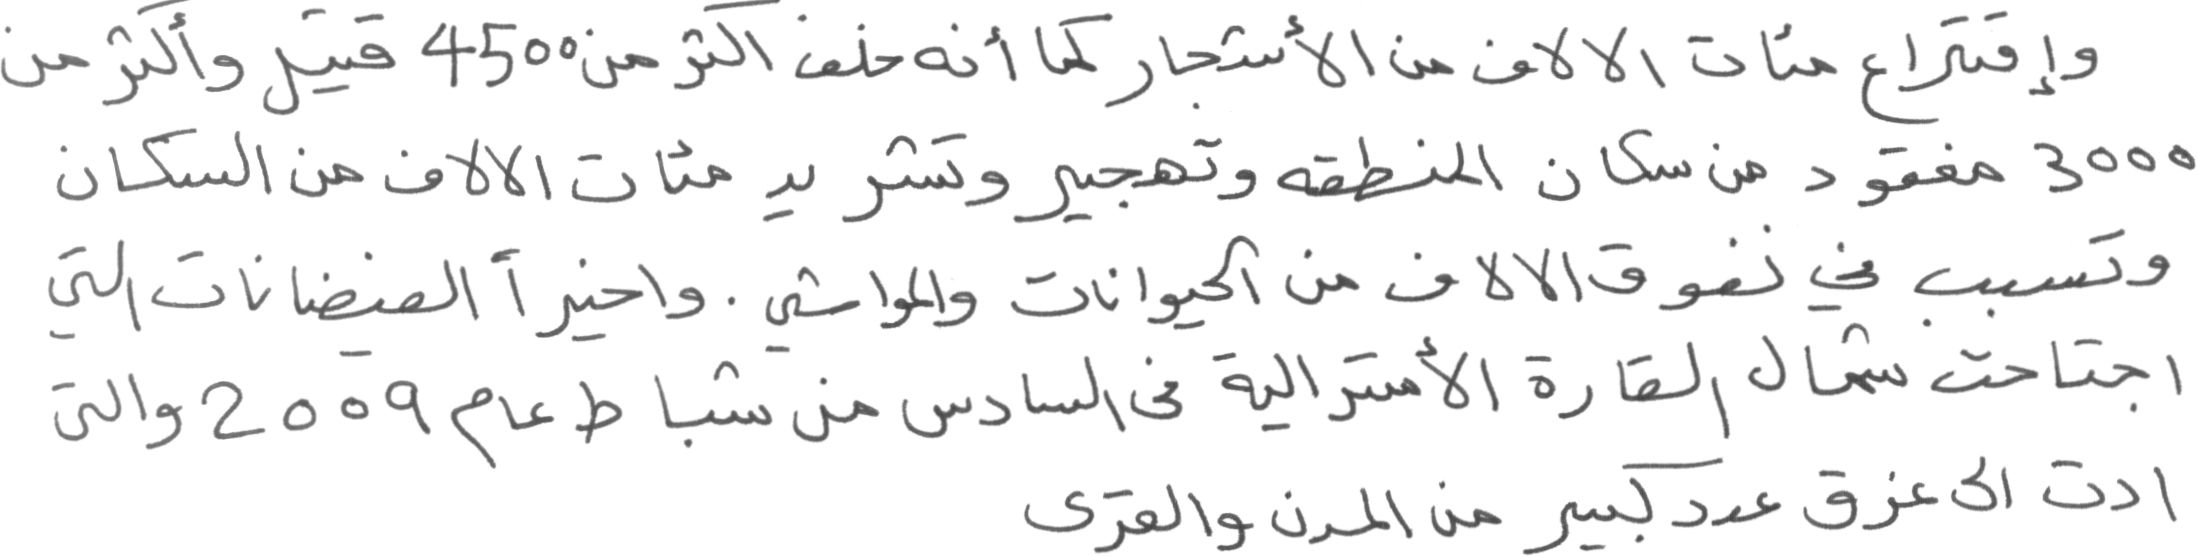 وإقتراع مئات الالاف من الأشجار كما أنه خلف اكثر من 4500 قتيل وأكثر من
3000 مفقود من سكان المنطقه وتهجير وتشريد مئات الالاف من السكان
وتسبب في نفوق الالاف من الحيوانات والمواشي . واخيرآ الفيضانات التي
اجتاحت شمال القارة الأسترالية في السادس من شباط عام 2009 والتى
ادت الى غزق عدد كبير من المدن والقرى